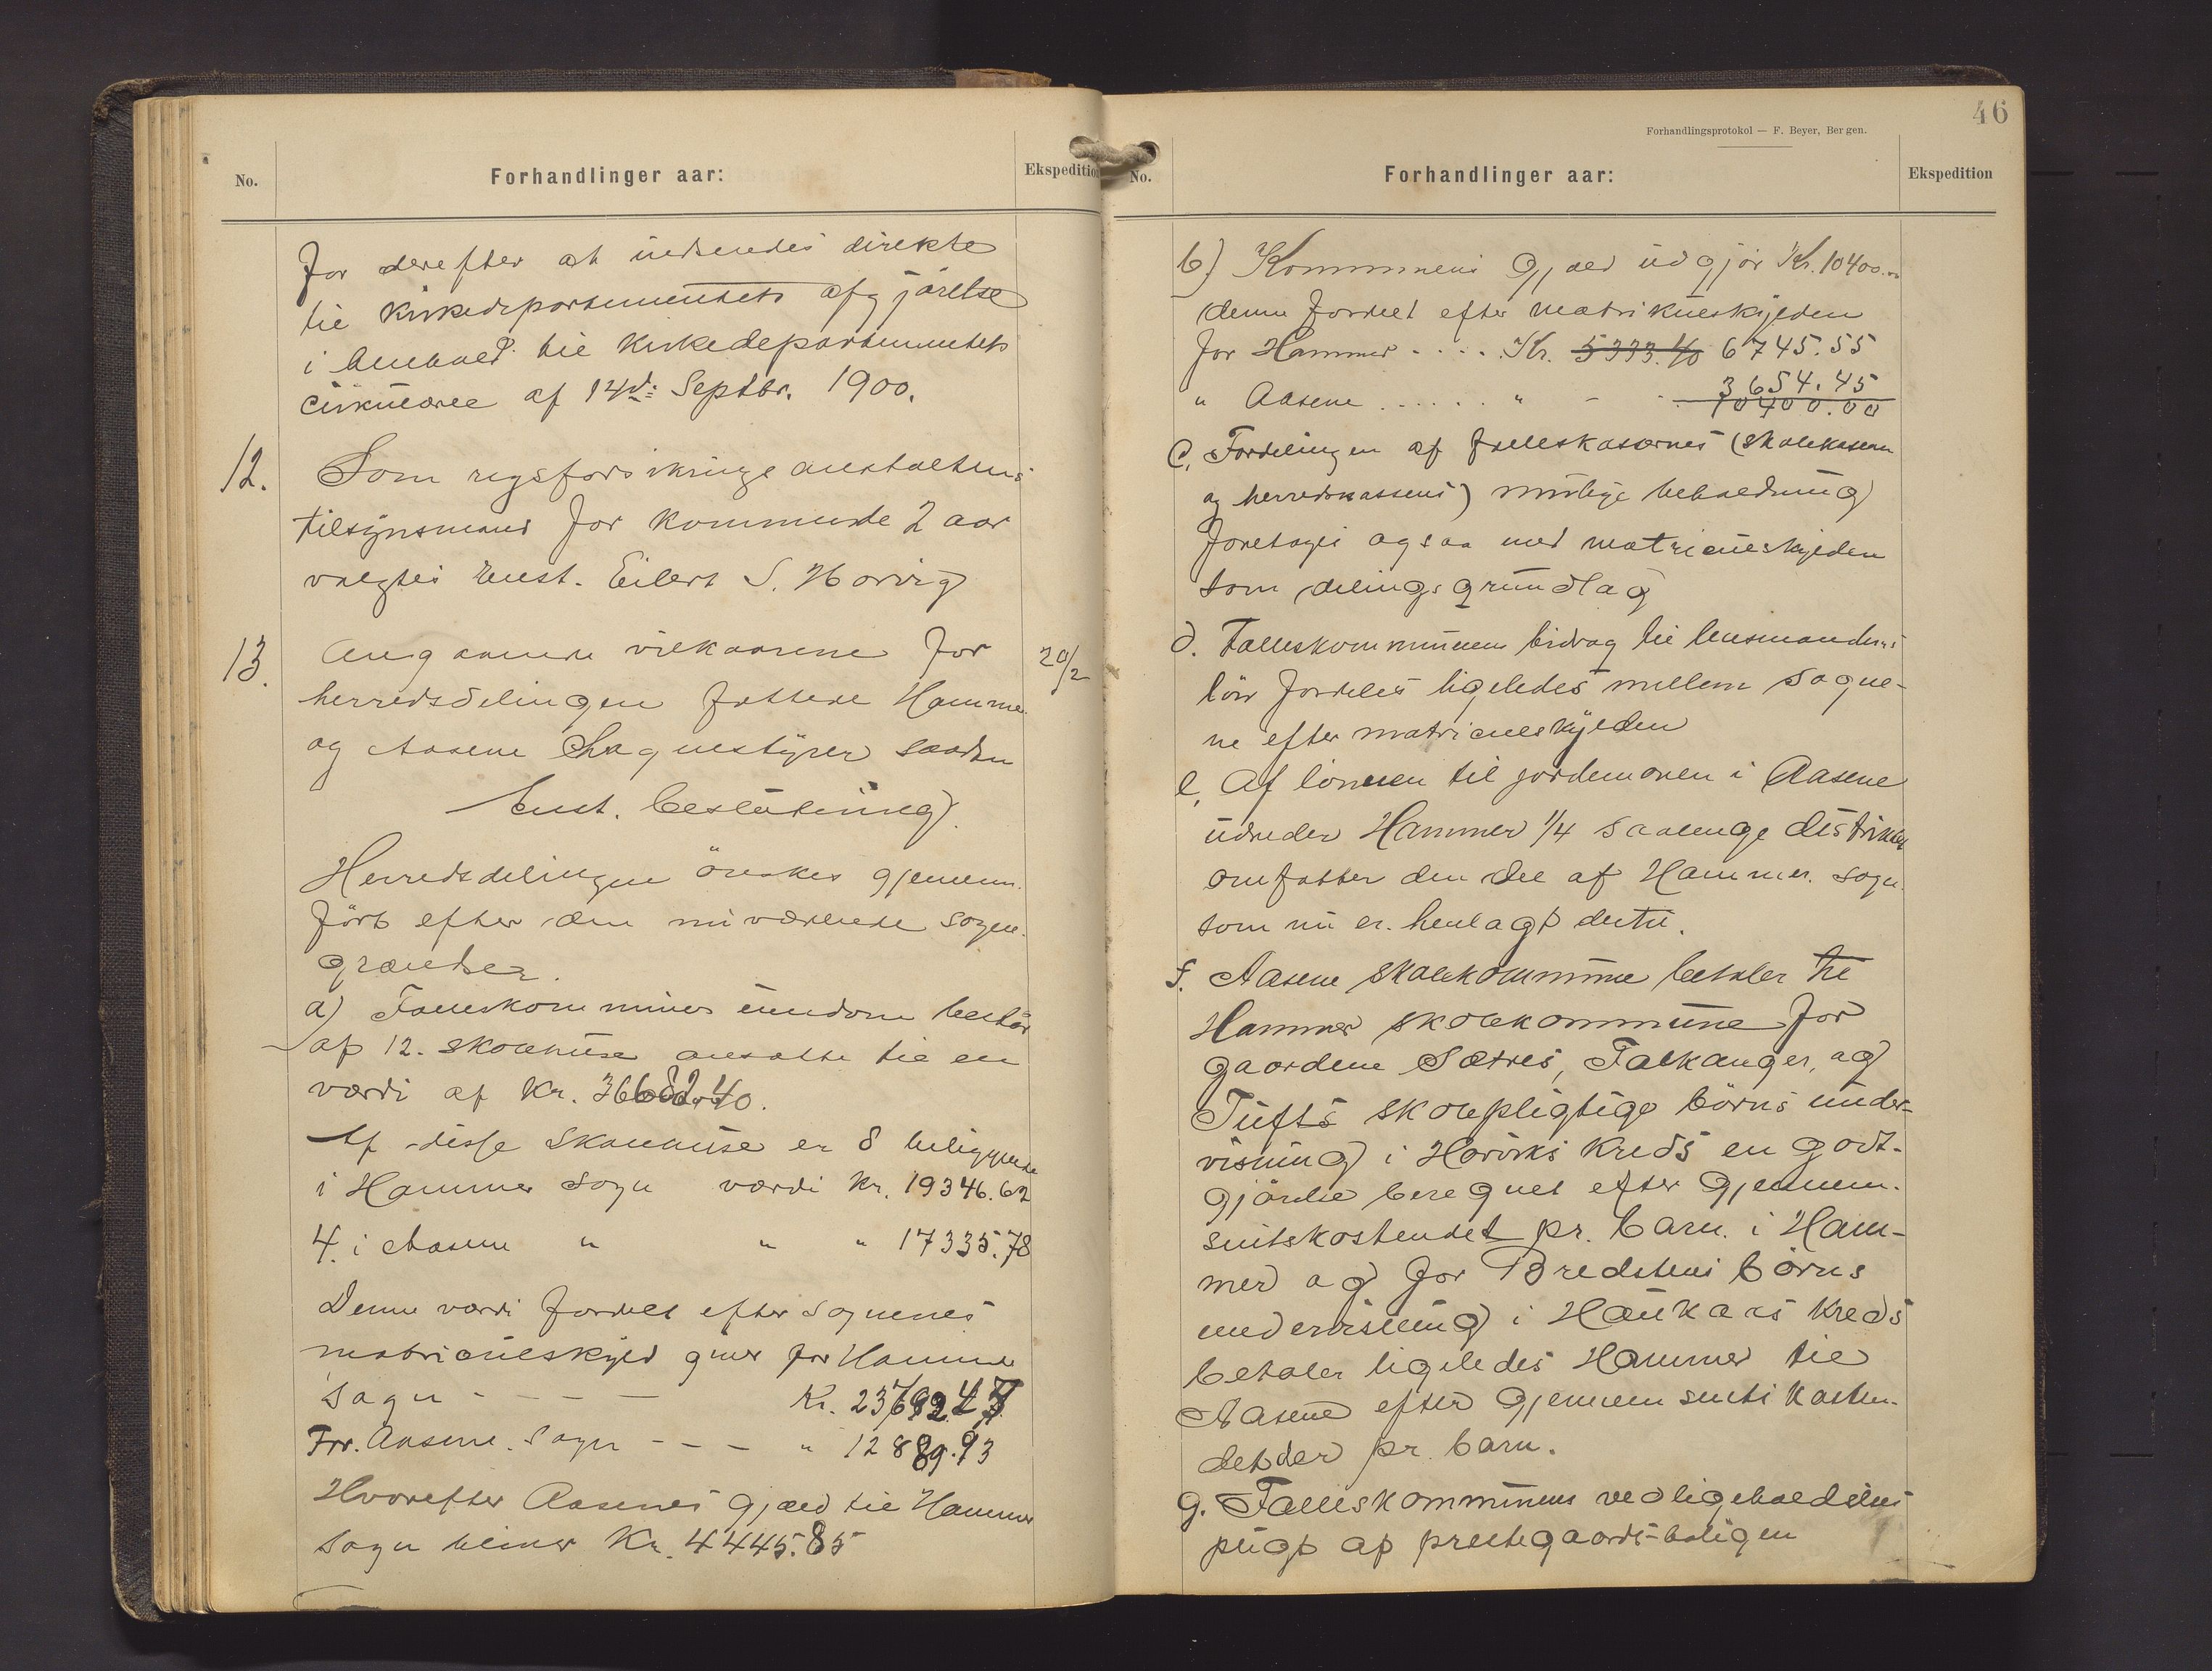 No.
Forhandlinger aar:
Ekspedition
for derefter at indsendes direkte
til kirkedepartementets afgjörelse
i henhold til kirkedepartementets
cirkulære af 14de Septbr. 1900.
12. Som rigsforsikringsanstaltens
tilsynsmand for kommende 2 aar
valgtes Enst. Eilert S. Horvig
13. Angaaende vilkaarene for 20/2
herredsdelingen fattede Hammer
og Aasene Sognestyrer saadan
Enst. beslutning.
Herredsdelingen önskes gjennem-
fört efter den nuværende sogne-
grændser.
a) Fælleskommunes eiendom bestaar
af 12. skolehuse ansatte til en
værdi af Kr. 36682.40.
Af disse Skolehuse er 8 beliggende
i Hammer Sogn værdi Kr. 19346.62
4. i Aasene " " " 17335.78
Denne værdi fordelt efter sognenes
matriculskyld giver for Hammer
Sogn - - - - Kr. 23792.47
For. Aasene. Sogn - - - " 12889.93
Hvorefter Aasenes gjæld til Hammer
Sogn bliver Kr. 4445.85
46
Forhandlingsprotokol — F. Beyer, Bergen.
No.
Forhandlinger aar:
Ekspedition
b) Kommunens Gjæld udgjör Kr. 10400.00
denne fordelt efter matrikulskylden
for Hammer . . . . . Kr. 5333.40 6745.55
" Aasene . . . . . . " - - 3654.45
10400.00
c. Fordelingen af fælleskassernes (skolekassen
og herredskassens) mulige beholdning
foretages ogsaa med matriculskylden
som delings grundlag
d. Fælleskommunens bidrag til lensmandens
lön fordeles ligeledes mellem sogne-
ne efter matriculskylden
e, Af lönnen til jordemoren i Aasene
udreder Hammer 1/4 saalenge distriktet
omfatter den del af Hammer. sogn.
som nu er. henlagt dertil.
f. Aasene skolekommune betaler til
Hammer skolekommune for
gaardene Sætres, Falkanger, og
Tufts skolepligtige börns under-
visning i Horviks Kreds en godt-
gjörelse beregnet efter Gjennem-
snitskostendet pr. barn. i Ham-
mer og for Bredstens börns
undervisning i Haukaas Kreds
betaler ligeledes Hammer til
Aasene efter Gjennemsnits kosten-
det der pr. barn.
g. Fælleskommunens vedligeholdelses
pligt af prestegaards-boligen